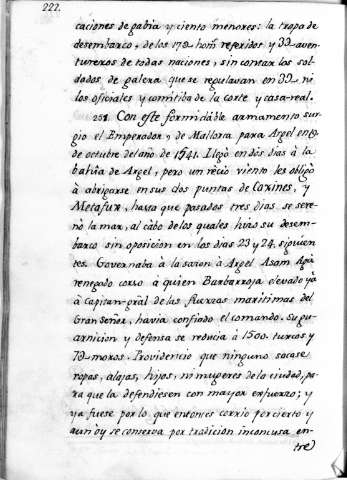 222.
caciones de gabia y ciento menores: la tropa de
desembarco, de los 17@ homs. referidos y 3@ aven-
tureros de todas naciones, sin contar los sol-
dados de galera que se regulavan en 3@ ni
los oficiales y comitiba de la corte y casa-real.
251. Con este formidable armamento sur-
gio el Emperador, de Mallorca para Argel en
de octubre del año de 1541. Llegò en dòs dias à la
bahìa de Argel, pero un rècio viento les obligò
à abrigarse en sus dos puntas de Caxines, y
Metafux, hasta que pasados tres dias se sere-
nò la mar, al càbo de los quales hizo su desem-
barco sin oposicion en los dias 23 y 24, siguien-
tes. Governaba à la sazon à Argel Asam Agà
renegado corso à quien Barbarroja elevado yà
à Capitan-gràl de las fuerzas maritimas del
Gran Señor, havia confiado el comando. Su gu-
arnicion y defensa se reducia à 1500. turcos y
7@ moros. Providenciò que ninguno sacase
ropas, alajas, hijos, ni mugeres de la ciudad, pa-
ra que la defendiesen con mayor esfuerzo; y
ya fuese por lo que entonces corrio por cierto y
aun òy se conserva por tradicion inconcusa en-
tre